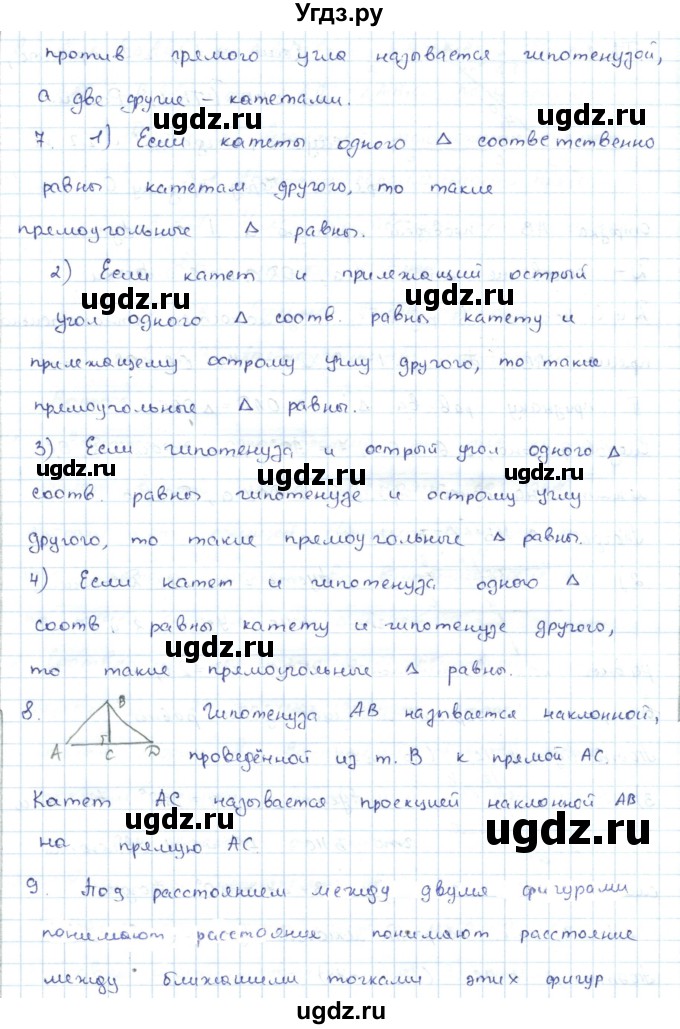 Угдз.ру
против прямого угла называется гипотенузой,
а две другие - катетами.
ugdz.ru ugdz.ru
7. 1) Если катеты одного Δ соответственно
равны катетам другого, то такие
прямоугольные Δ равны.
2) Если катет и прилежащий острый
ugdz.ru ugdz.ru
угол одного Δ соотв. равны катету и
прилежащему острому углу другого, то такие
прямоугольные Δ равны.
3) Если гипотенуза и острый угол одного Δ
ugdz.ru ugdz.ru ugdz.ru
соотв. равны гипотенузе и острому углу
другого, то такие прямоугольные Δ равны.
4) Если катет и гипотенуза одного Δ
соотв. равны катету и гипотенузе другого,
ugdz.ru ugdz.ru
то такие прямоугольные Δ равны.
8. B Гипотенуза AB называется наклонной,
A C D проведённой из т. B к прямой AC.
ugdz.ru
Катет AC называется проекцией наклонной AB
ugdz.ru ugdz.ru
на прямую AC
9. Под расстоянием между двумя фигурами
ugdz.ru ugdz.ru
понимают расстояния понимают расстояние
между ближайшими точками этих фигур
ugdz.ru